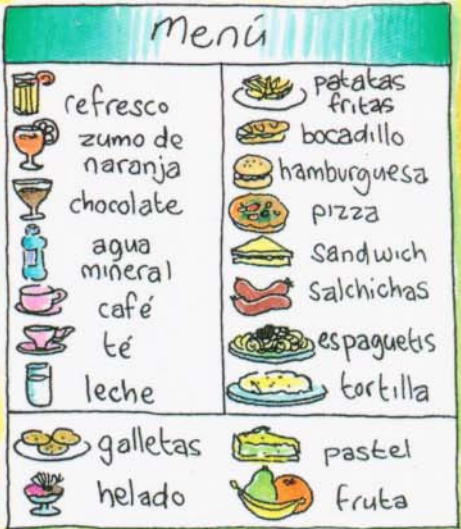 Menú
refresco
zumo de
naranja
chocolate
agua
mineral
café
té
leche
patatas
fritas
bocadillo
hamburguesa
pizza
Sandwich
Salchichas
espaguetis
tortilla
galletas
helado
pastel
fruta